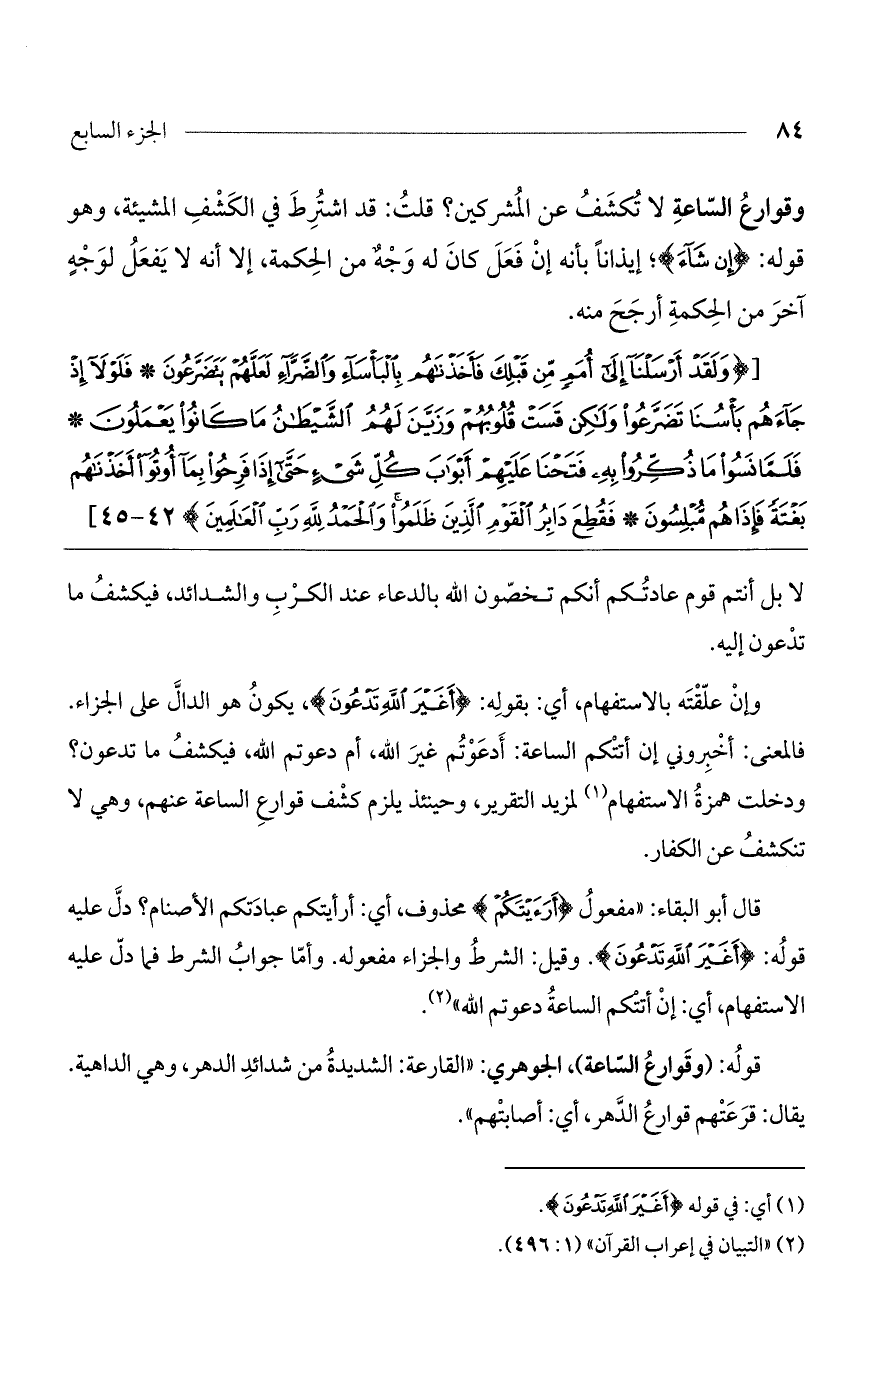 ٨٤ الجزء السابع
وقوارعُ السّاعةِ لا تُكشَفُ عن المُشركين؟ قلتُ: قد اشتُرِطَ في الكَشْفِ المشيئة، وهو
قوله: ﴿إِن شَآءَ﴾؛ إيذاناً بأنه إنْ فَعَلَ كانَ له وَجْهٌ من الحِكمة، إلا أنه لا يَفعَلُ لوَجْهٍ
آخرَ من الحِكمةِ أرجَحَ منه.
[﴿وَلَقَدْ أَرْسَلْنَآ إِلَىٰٓ أُمَمٍ مِّن قَبْلِكَ فَأَخَذْنَٰهُم بِٱلْبَأْسَآءِ وَٱلضَّرَّآءِ لَعَلَّهُمْ يَتَضَرَّعُونَ * فَلَوْلَآ إِذْ
جَآءَهُم بَأْسُنَا تَضَرَّعُوا۟ وَلَٰكِن قَسَتْ قُلُوبُهُمْ وَزَيَّنَ لَهُمُ ٱلشَّيْطَٰنُ مَا كَانُوا۟ يَعْمَلُونَ *
فَلَمَّا نَسُوا۟ مَا ذُكِّرُوا۟ بِهِۦ فَتَحْنَا عَلَيْهِمْ أَبْوَٰبَ كُلِّ شَىْءٍ حَتَّىٰٓ إِذَا فَرِحُوا۟ بِمَآ أُوتُوٓا۟ أَخَذْنَٰهُم
بَغْتَةً فَإِذَا هُم مُّبْلِسُونَ * فَقُطِعَ دَابِرُ ٱلْقَوْمِ ٱلَّذِينَ ظَلَمُوا۟ ۚ وَٱلْحَمْدُ لِلَّهِ رَبِّ ٱلْعَٰلَمِينَ﴾ ٤٢-٤٥]
لا بل أنتم قوم عادتُكم أنكم تخصّون الله بالدعاء عند الكرْبِ والشدائد، فيكشفُ ما
تدْعون إليه.
وإنْ علّقْتَه بالاستفهام، أي: بقولِه: ﴿أَغَيْرَ ٱللَّهِ تَدْعُونَ﴾، يكونُ هو الدالَّ على الجزاء.
فالمعنى: أخْبِروني إن أتتْكم الساعة: أَدعَوْتُم غيرَ الله، أم دعوتم الله، فيكشفُ ما تدعون؟
ودخلت همزةُ الاستفهام(١) لمزيد التقرير، وحينئذ يلزم كشْف قوارعِ الساعة عنهم، وهي لا
تنكشفُ عن الكفار.
قال أبو البقاء: «مفعولُ ﴿أَرَءَيْتَكُمْ﴾ محذوف، أي: أرأيتكم عبادَتكم الأصنام؟ دلَّ عليه
قولُه: ﴿أَغَيْرَ ٱللَّهِ تَدْعُونَ﴾. وقيل: الشرطُ والجزاء مفعوله. وأمّا جوابُ الشرط فما دلّ عليه
الاستفهام، أي: إنْ أتتْكم الساعةُ دعوتم الله»(٢).
قولُه: (وقَوارعُ السّاعة)، الجوهري: «القارعة: الشديدةُ من شدائدِ الدهر، وهي الداهية.
يقال: قرَعَتْهم قوارعُ الدَّهر، أي: أصابتْهم».
(١) أي: في قوله ﴿أَغَيْرَ ٱللَّهِ تَدْعُونَ﴾.
(٢) «التبيان في إعراب القرآن» (١: ٤٩٦).